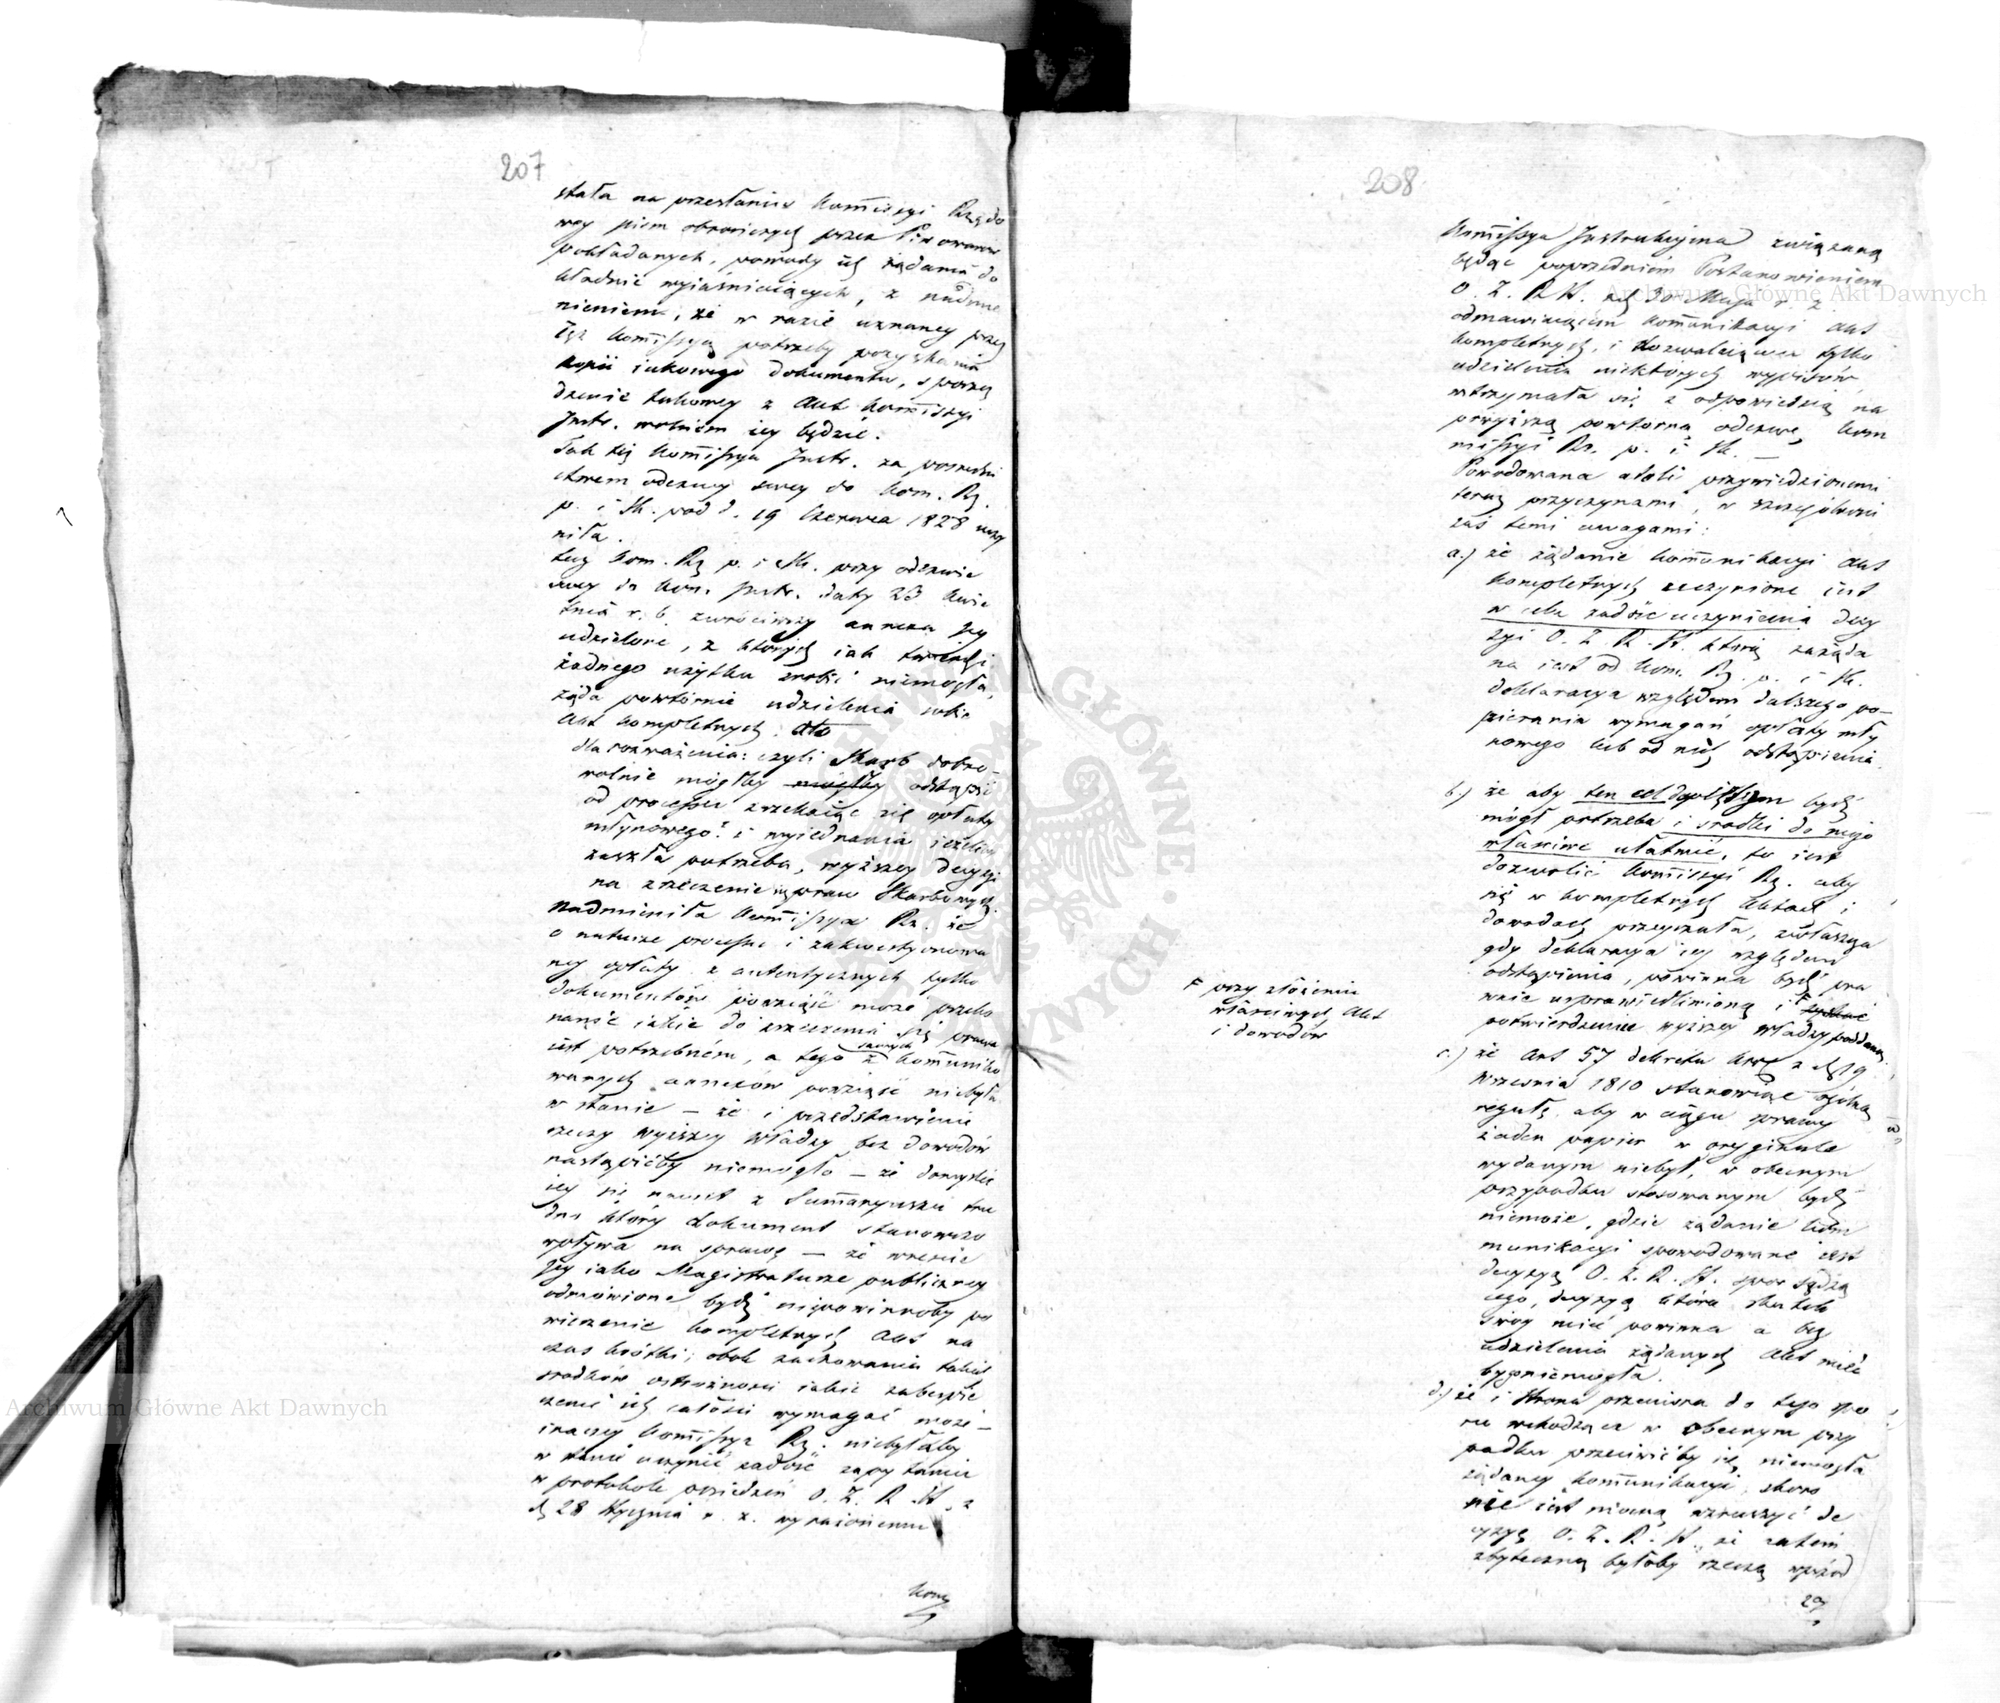 207
stała na przesłaniu Kommissyi Rządo
wey pism obronnych przez Piwowarow
pokładanych, powody ich żądania do
kładnie wyiaśniaiących, z nadme
nieniem, że w razie uznaney przez
też Kommissyą potrzeby pozyskania
kopii iakowego dokumentu, sporzą
dzenie takowey z Akt Kommissyi
Instr. wolnem iey będzie.
Tak też Kommissya Instr. za pośredni
ctwem odezwy swey do Kom. Rz.
p. i Sk. pod d. 19 Czerwca 1828 uczy
niła.
Lecz Kom. Rz. p. i Sk. przy odezwie
swey do Kom. Instr. daty 23 Kwie
tnia r. b. zwróciwszy annexa Jey
udzielone, z których iak twierdzi
żadnego użytku zrobić niemogła,
żąda powtórnie udzielenia sobie
Akt kompletnych. Ato
dla rozważenia: czyli Skarb dobro-
wolnie mógłby mógłby odstąpić
od processu zrzekaiąc się opłaty
młynowego? i wyiednania ieżeliby
zaszła potrzeba, wyższey decyzyi
na zrzeczenie się praw Skarbowych.
Nadmieniła Kommissya Rz. że
o naturze processu i zakwestyonowa
ney opłaty z autentycznych tylko
dokumentów powziąść może przeko
nanie iakie do zrzeczenia się prawa
iest potrzebném, a tego z samych Kommuniko
wanych annexów powziąść niebyła
w stanie – że i przedstawienie
rzeczy wyższey Władzy bez dowodów
nastąpićby niemogło – że domyślić
iey się nawet z Summaryusza tru
dno który dokument stanowczo
wpływa na sprawę – że wreszcie
Jey iako Magistraturze publiczney
odmówione bydź niepowinnoby po
wierzenie kompletnych Akt na
czas krótki, obok zachowania takich
srodków ostrożności iakie zabezpie
czenie ich całości wymagać może –
inaczey Kommissya Rz. niebyłaby
w stanie uczynić zadość zapytaniu
w protokole posiedzeń O. Z. R. H. z
d. 28 Stycznia r. z. wyrażonemu
Kom
208
Kommissya Instrukcyina związaną
będąc poprzedniem Postanowieniem
O. Z. R. H. z d. 30 Maja r. z.
odmawiaiącem kommunikacyi Akt
kompletnych, i dozwalaiącem tylko
udzielenia niektórych wypisów,
wstrzymała się z odpowiedzią na
powyższą powtorną odezwę Kom
missyi Rz. p. i Sk. –
Powodowana atoli przywiedzionemi
teraz przyczynami, w szczególności
zaś temi uwagami:
a.) że żądanie kommunikacyi Akt
kompletnych uczynione iest
w celu zadość uczynienia decy
zyi O. Z. R. H. którą zażąda
na iest od Kom. Rz. p. i Sk.
deklaracya względem dalszego po-
pierania wymagań opłaty mły
nowego lub od niey odstąpienia.
b.) że aby ten cel dopiętym bydź
mógł potrzeba i srodki do niego
właściwe ułatwić, to iest
dozwolić Kommissyi Rz. aby
się w kompletnych Aktach i
dowodach przeyrzała, zwłaszcza
gdy deklaracya iey względem
odstąpienia, powinna bydź pra
wnie usprawiedliwioną i F
potwierdzeniu wyższey władzy poddaną.
F przy złożeniu
właściwych Akt
i dowodów
c.) że Art 57 dekretu Kró. z d. 19
Września 1810 stanowiąc ogólną
regułę, aby w ciągu sprawy
żaden papier w oryginale
wydanym niebył, w obecnym
przypadku stosowanym bydź
niemoże, gdzie żądanie kom
munikacyi spowodowane iest
decyzyą O. Z. R. H. spor sądzą
cego, decyzyą która skutek
swoy mieć powinna a bez
udzielenia żądanych Akt mieć
by go niemogła.
d.) że i strona przeciwna do tego spo
ru wchodząca w obecnym przy
padku przeciwićby się niemogła
żądaney kommunikacyi, skoro
nie iest mocną wzruszyć de
cyzyę O. Z. R. H., że zatem
zbyteczną byłoby rzeczą wprzód